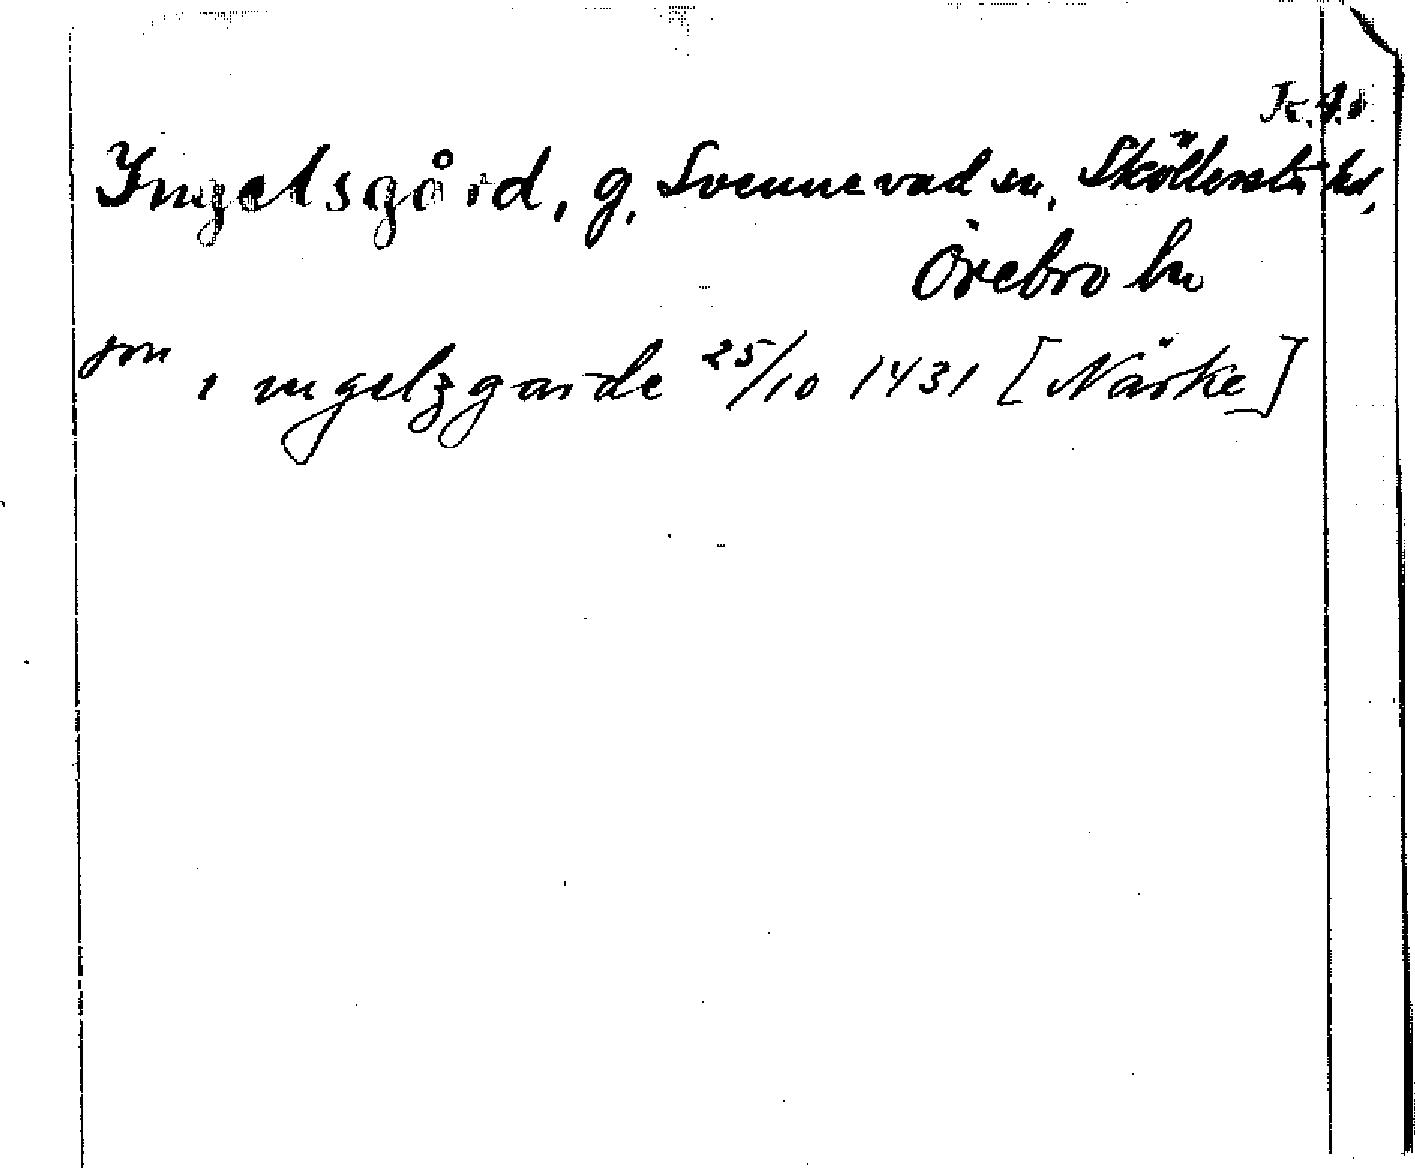 Ingelsgård, g. Svennevad sn, Sköllersta hd,
Örebro ln
jon i ingelzgarde 25/10 1431 [Närke]